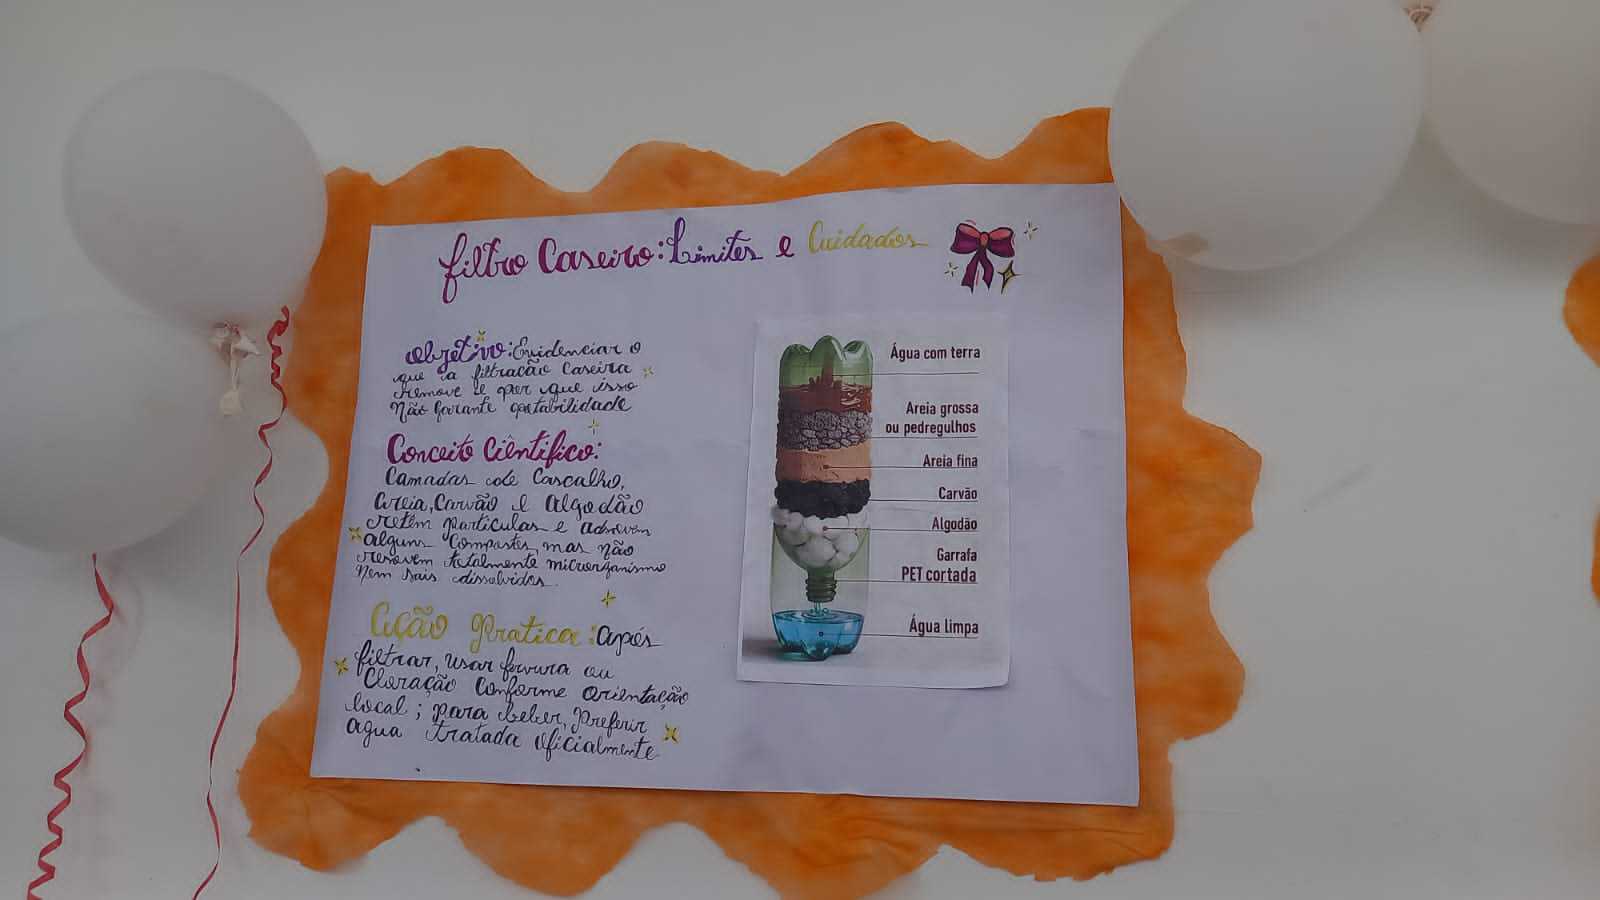 Filtro Caseiro: Limites e Cuidados
Objetivo: Evidenciar o
que a filtracão Caseira
remove e por que isso
Não Garante potabilidade
Conceito Científico:
Camadas de Cascalho,
Areia, Carvão e Algodão
retêm partículas e adsorvem
alguns Compostes, mas não
removem totalmente microrganismo
Nem sais dissolvidos.
Ação Pratica: após
filtrar, usar fervura ou
Cloração Conforme orientação
local; para beber, Preferir
agua tratada oficialmente
Água com terra
Areia grossa
ou pedregulhos
Areia fina
Carvão
Algodão
Garrafa
PET cortada
Água limpa